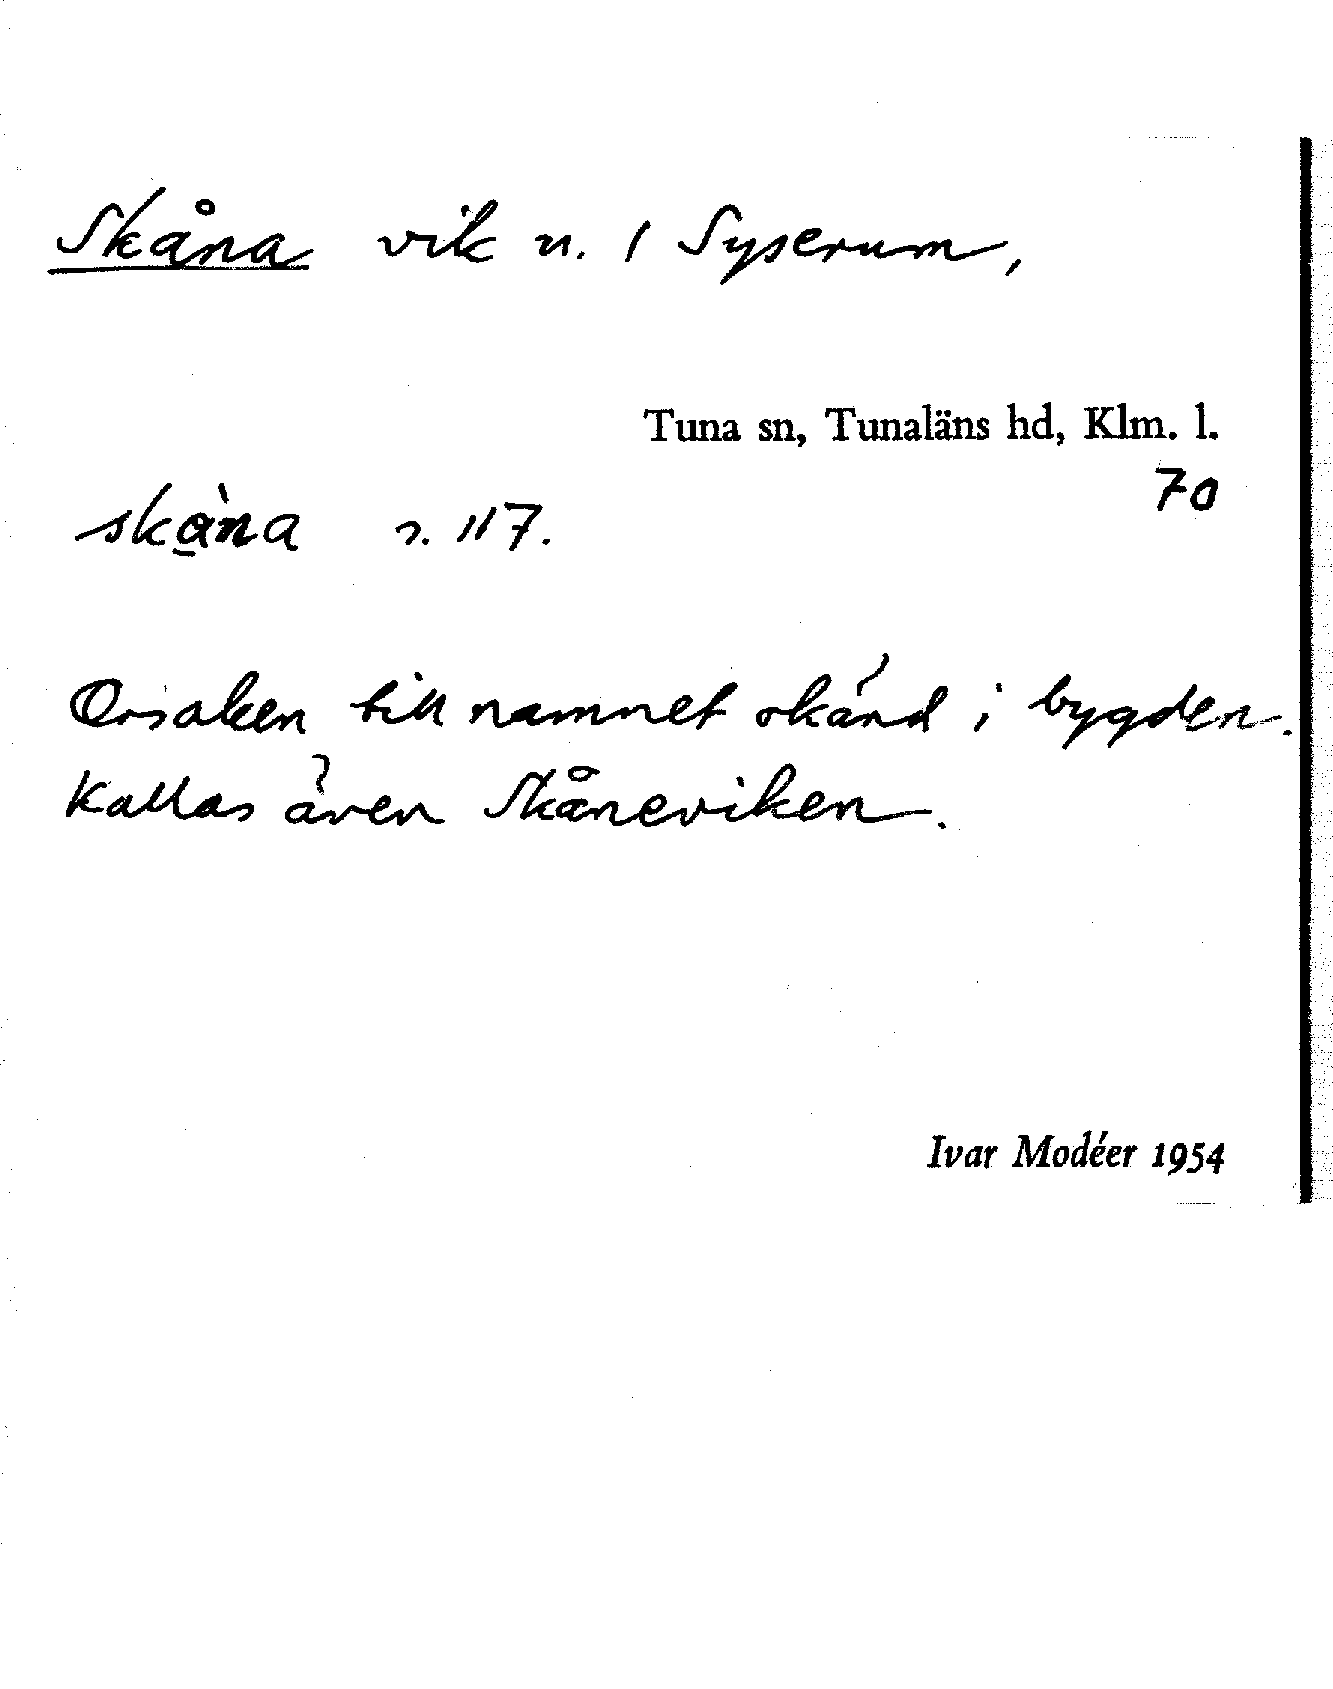 Skåna vik n. / Syserum,
Tuna sn, Tunaläns hd, Klm. l.
70
skа̀na n. 117.
Orsaken till namnet okänd i bygden.
Kallas även Skåneviken.
Ivar Modéer 1954